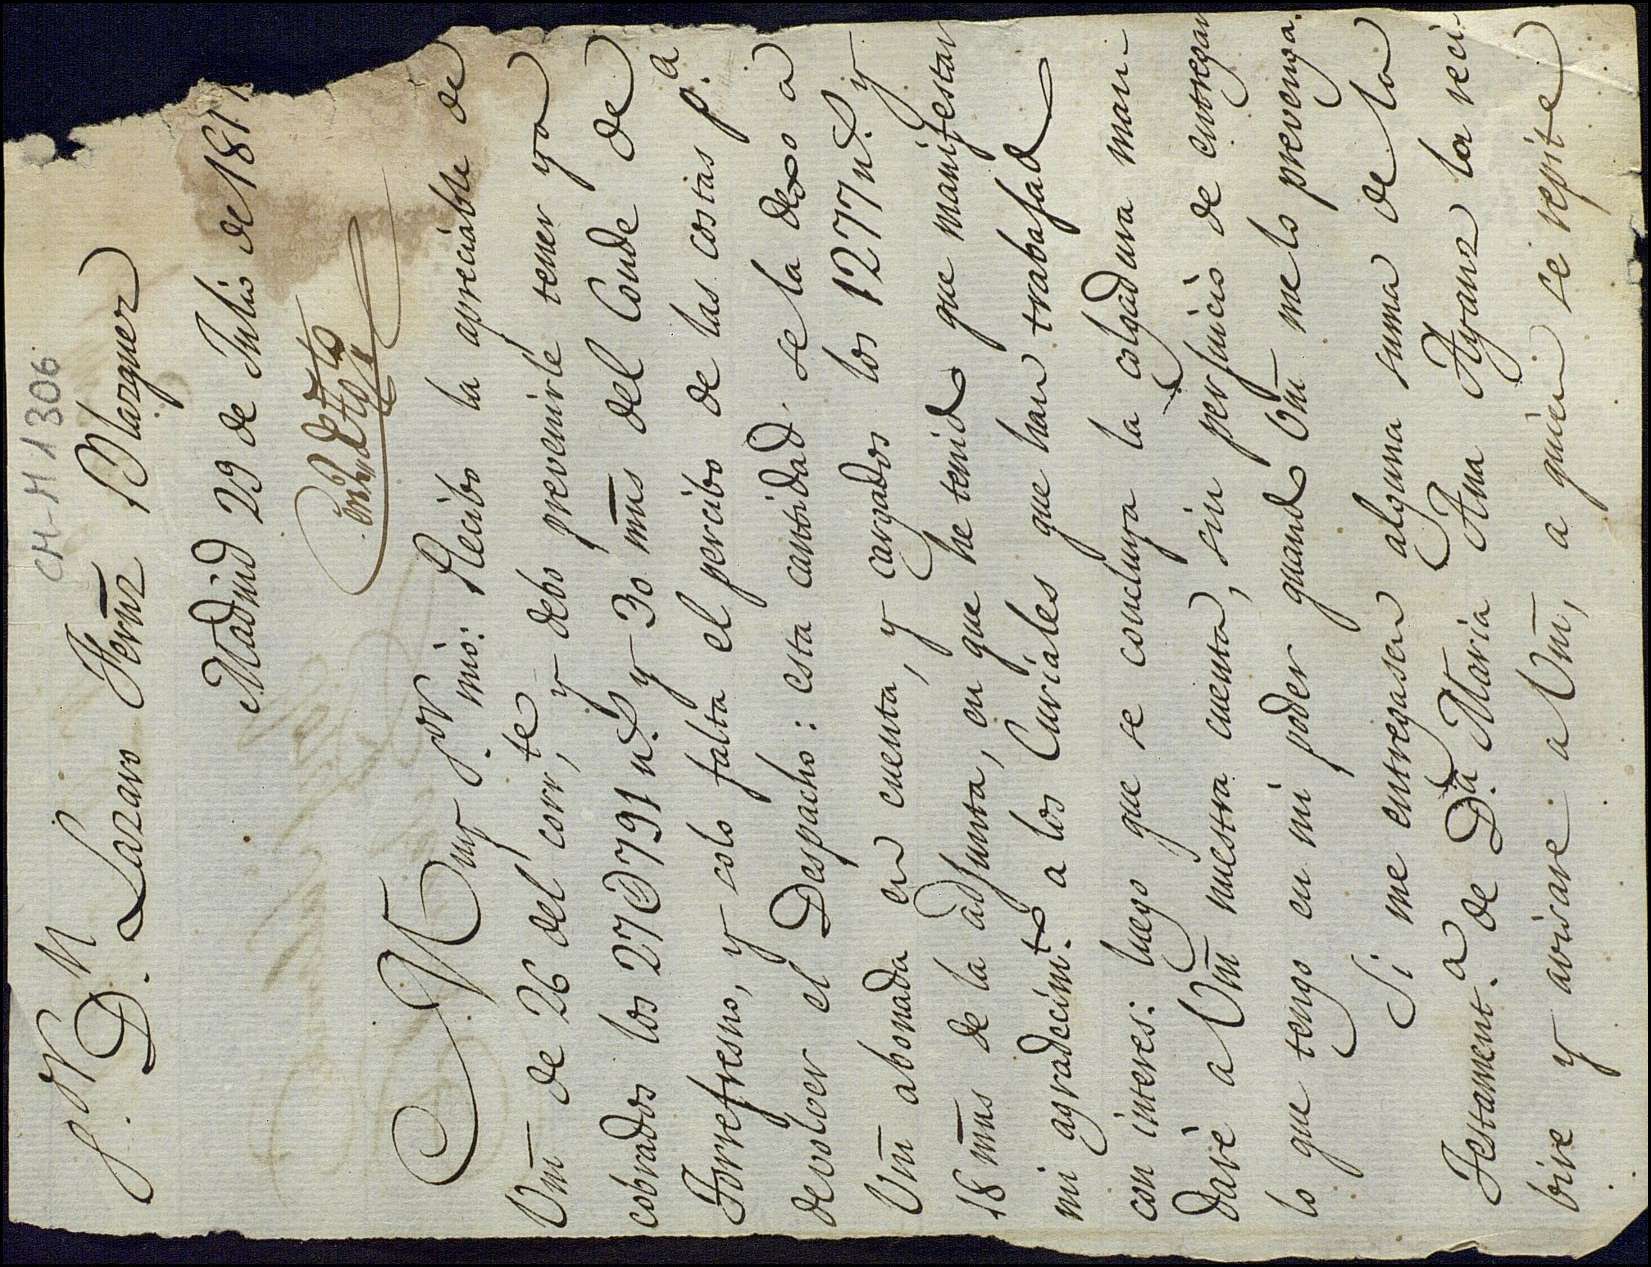 CM-M 1306
S.or D.n Lazaro Fernz Blazquez
Madrid 29 de Julio de 181
Muy S.or mio: Recibo la apreciable de
Vm de 26 del corr.te, y debo prevenirle tener ya
cobrados los 27@791 rs. y 30 mrs del Conde de
Torrefresno, y solo falta el percibo de las costas p.a
devolver el Despacho: esta cantidad se la dexo a
Vm abonada en cuenta, y cargados los 1277 rs. y
18 mrs de la adjunta, en que he tenido que manifestar
mi agradecim.to a los Curiales que han trabajado
con interes: luego que se concluya la colgadura man-
daré a Vm nuestra cuenta, sin perjuicio de entregar
lo que tengo en mi poder quando Vm me lo prevenga.
Si me entregasen alguna suma de la
Testament.a de D.a Maria Ana Ayanz la reci-
bire y avisare a Vm, a quien se repite